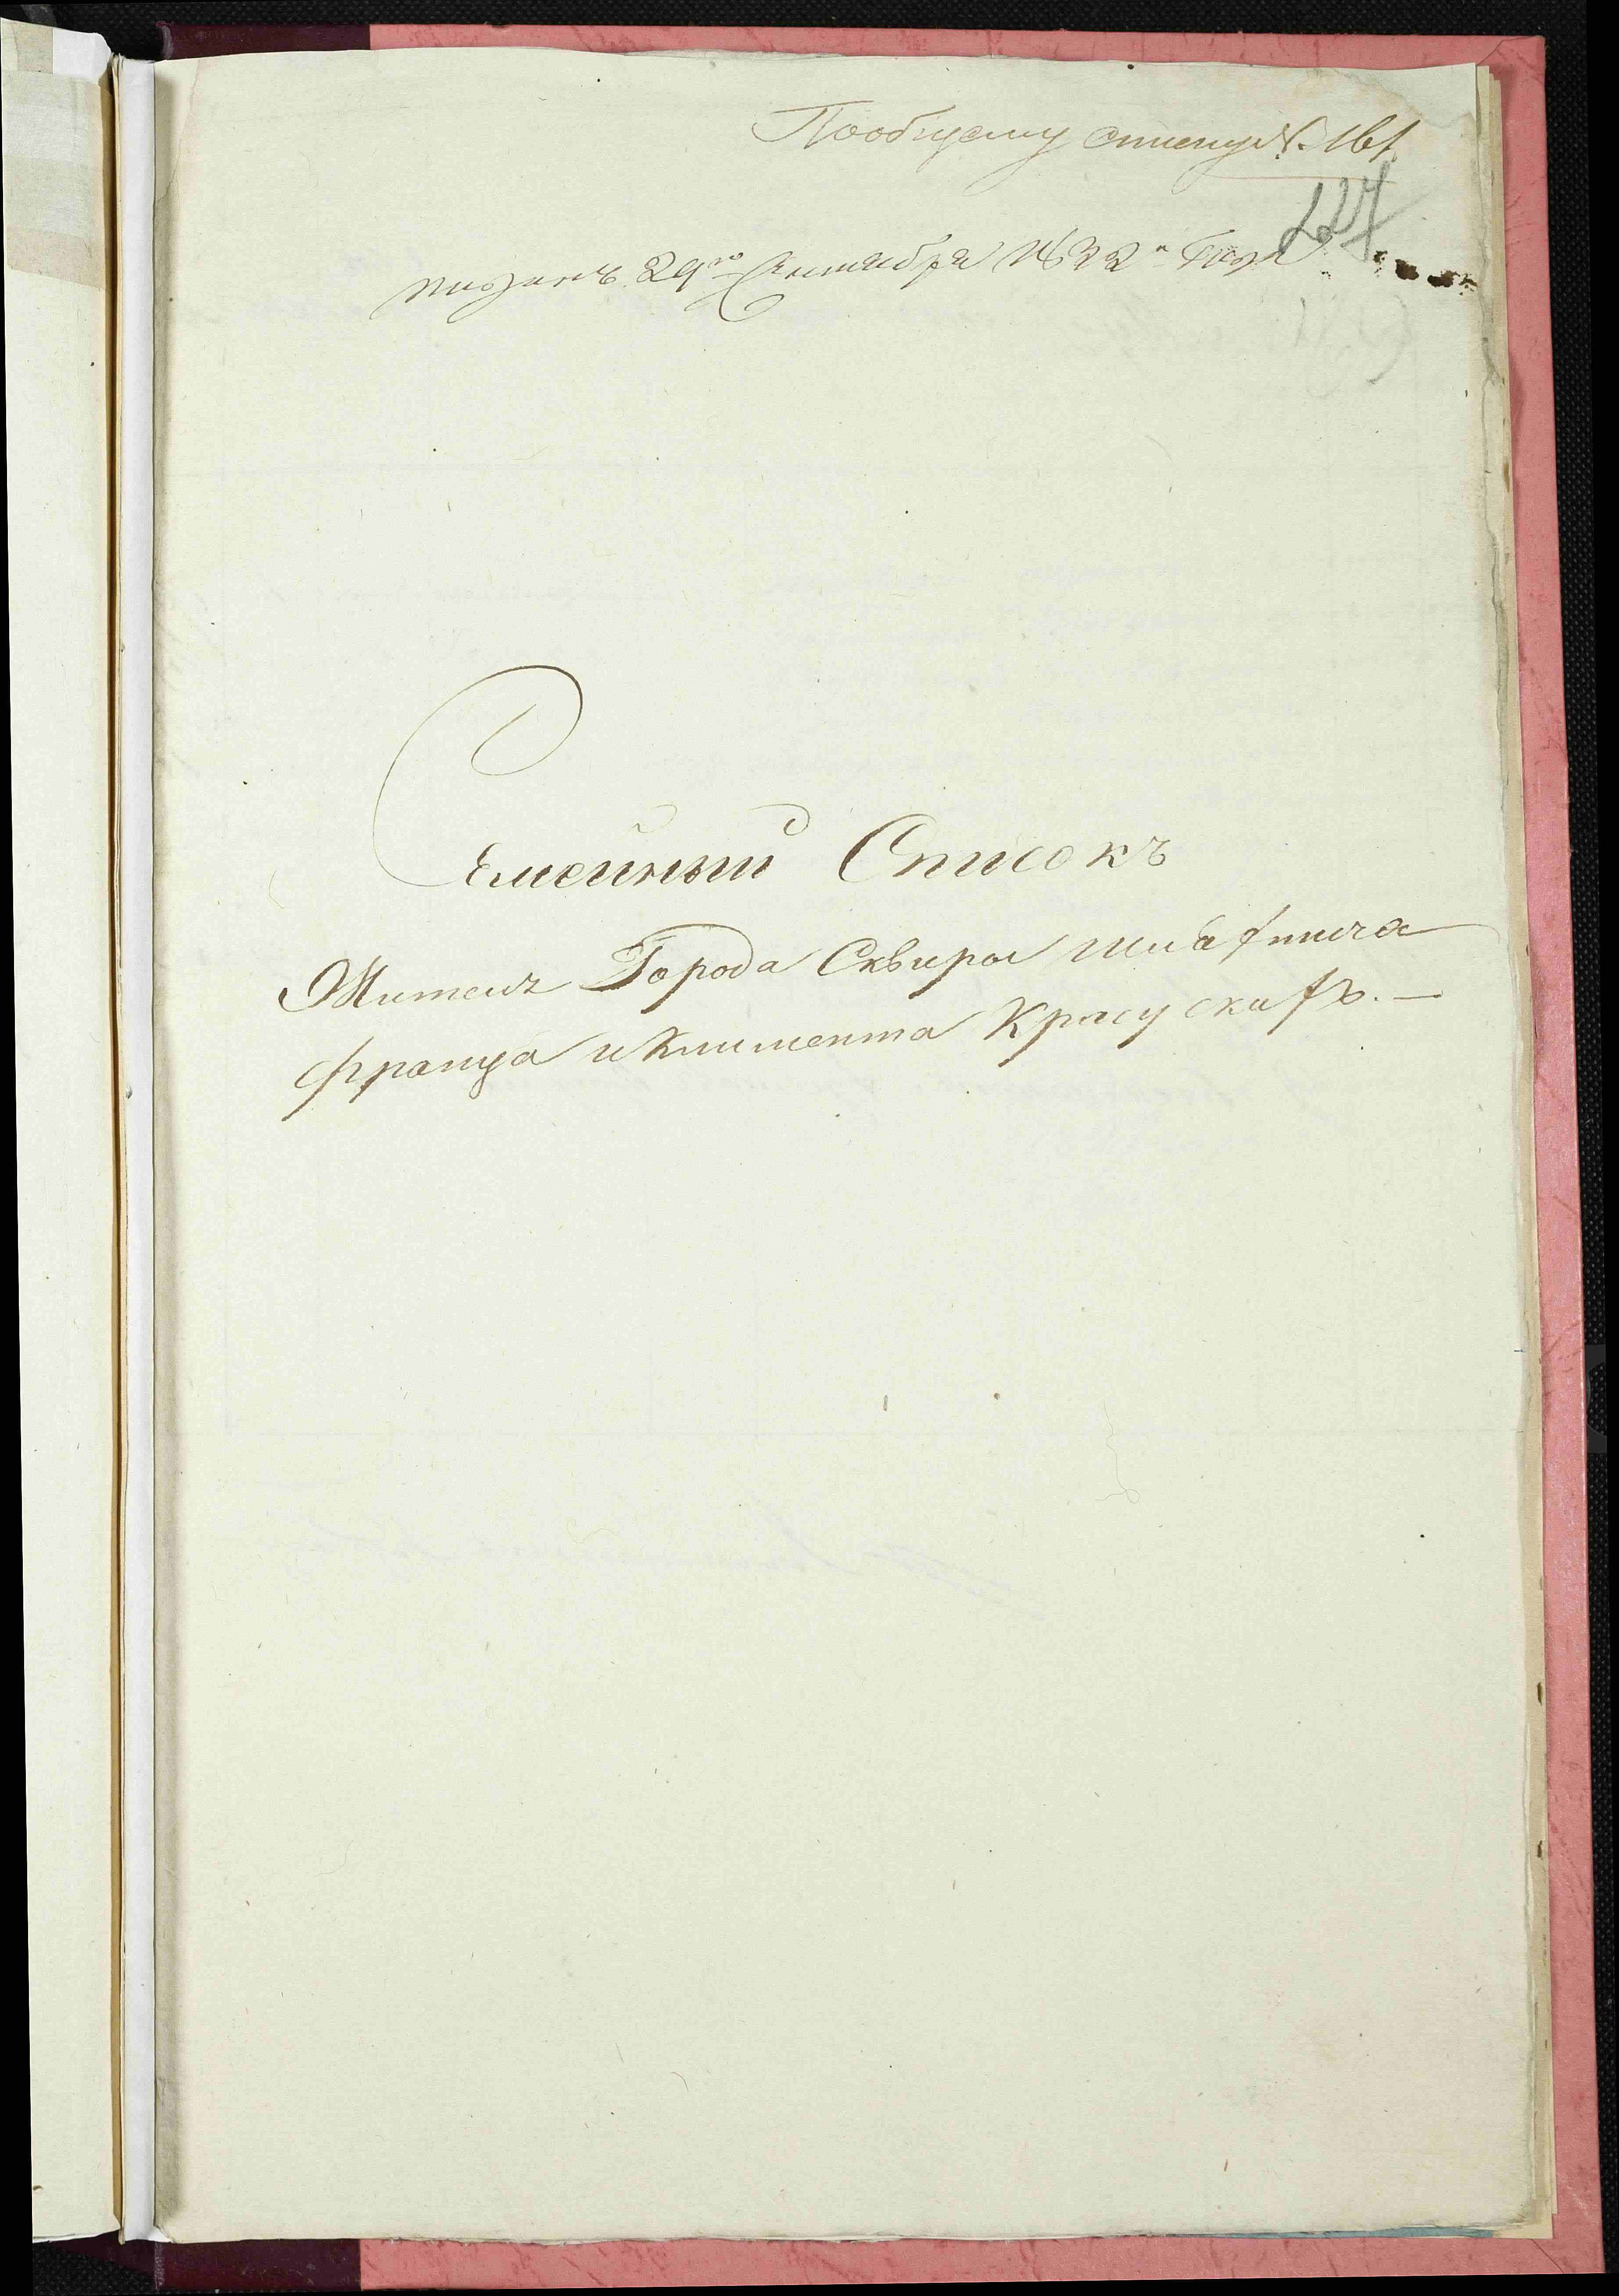 Пообщему списку №. 161
227
поданъ 29го Сентября 1832го Года
Семейный Списокъ
Жителя Города Сквиры шляхтича
Франца и Климента Красускахъ. —